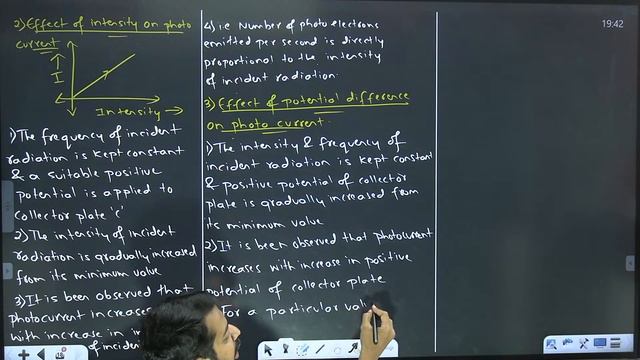 2) Effect of intensity on photo
current
I
Intensity →
1) The frequency of incident
radiation is kept constant
& a suitable positive
potential is applied to
collector plate 'c'
2) The intensity of incident
radiation is gradually increased
from its minimum value
3) It is been observed that
photocurrent increases
with increase in in
of incident
4) i.e Number of photo electrons
emitted per second is directly
proportional to the intensity
of incident radiation.
3) Effect of potential difference
on photo current.
1) The intensity & frequency of
incident radiation is kept constant
& positive potential of collector
plate is gradually increased from
its minimum value
2) It is been observed that photocurrent
increases with increase in positive
potential of collector plate
For a particular val
19:42